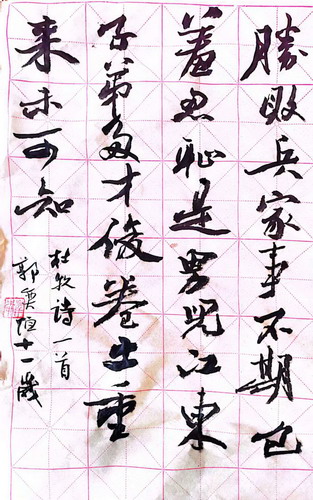 勝敗兵家事不期包
羞忍恥是男兒江東
子弟多才俊卷土重
來未可知
杜牧詩一首
郭 十一歲